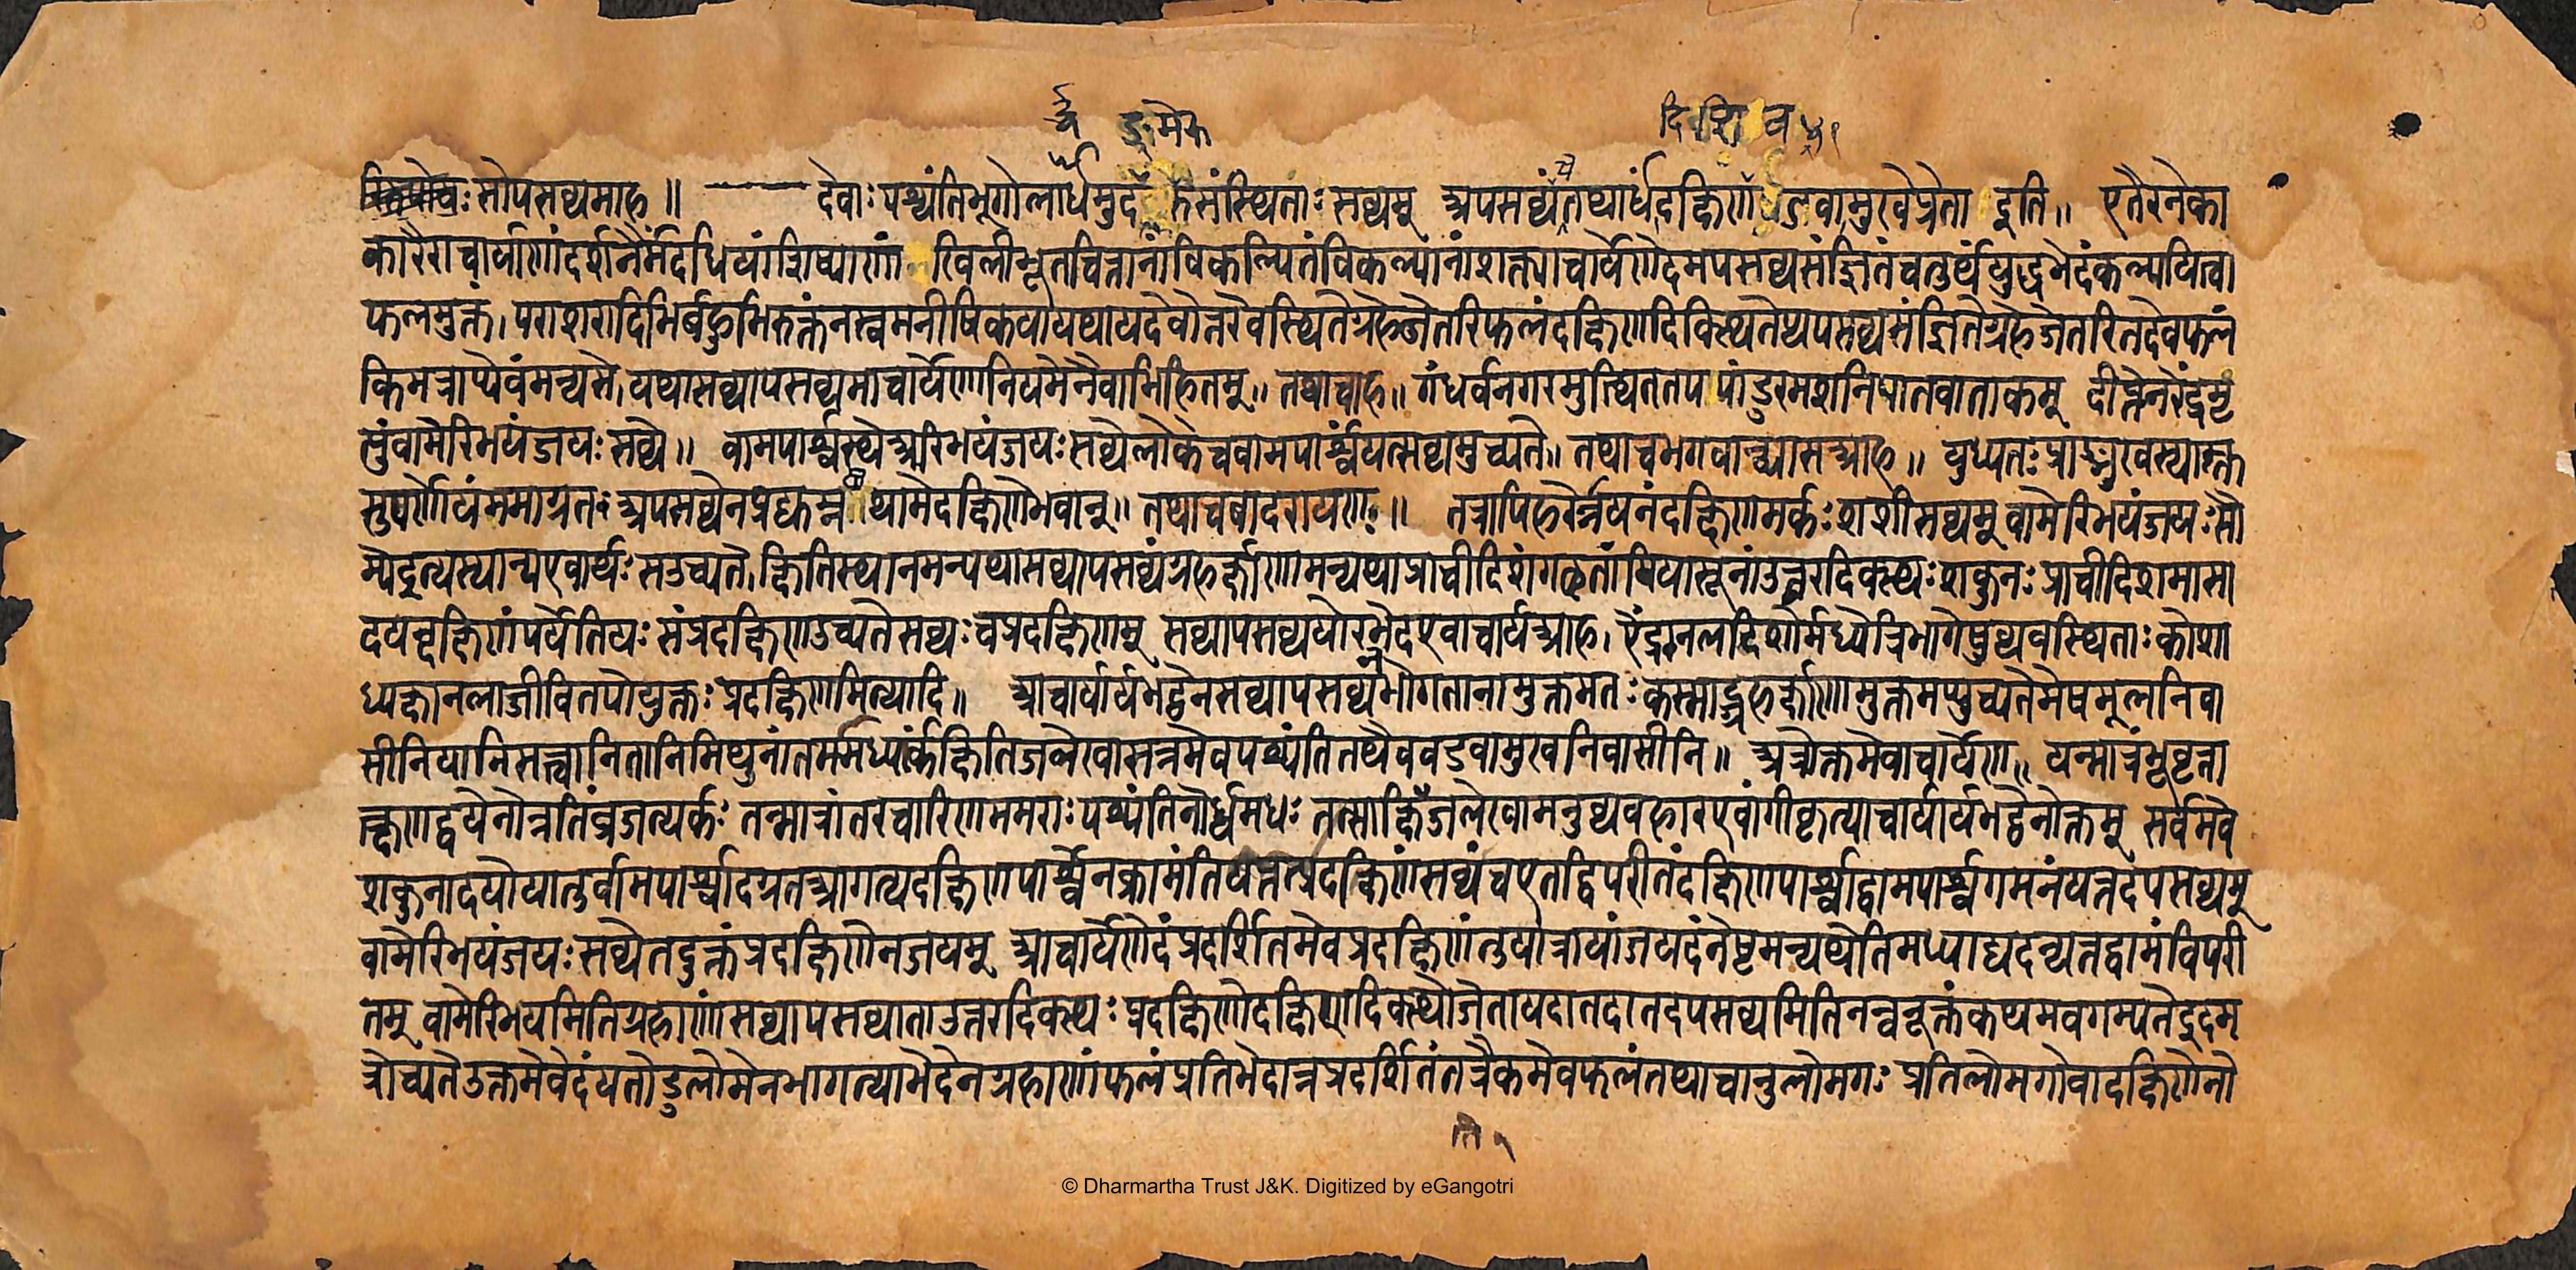 र्द्ध ङ्मेरु
दि व ५१
सोपसव्यमाह ॥ देवाः पश्यंतिभूगोलार्धमुद संस्थिताः सव्यम् अपसव्यंतथार्धंदक्षिण वडवामुखेप्रेता इति ॥ एतैरनेका
कारैराचार्याणांदर्शनैर्मंदधियांशिष्याणां खिलीभूतचित्तानांविकल्पितंविकल्पानांशक्त्याचार्येणेदमपसव्यसंज्ञितंचतुर्थंयुद्धभेदंकल्पयित्वा
फलमुक्तं । पराशरादिभिर्बहुभिरुक्तंनस्वमनीषिकयायथायदेवोत्तरेवस्थितेग्रहेजेतरिफलंदक्षिणदिक्स्थितेप्यपसव्यसंज्ञितेग्रहेजेतरितदेवफलं
किमत्राप्येवंमन्यसे । यथासव्यापसव्यमाचार्येणनियमेनैवाभिहितम् ॥ तथाचाह ॥ गंधर्वनगरमुत्थितत पांडुरमशनिपातवाताकम् दीप्तेनरेंद्रमृ
त्युंवामेरिभयंजयः सव्ये ॥ वामपार्श्वस्थेअरिभयंजयः सव्येलोकेचवामपार्श्वंयत्सव्यमुच्यते ॥ तथाचभगवान्व्यासआह ॥ युध्यतः प्राङ्मुखस्यास्त
सुपर्णोयंममाग्रतः अपसव्येन थामेदक्षिणेभवान् ॥ तथाचबादरायणः ॥ तत्रापिहरेर्न्नयनंदक्षिणमर्कः शशीसव्यम् वामेरिभयंजयः सौ
म्यइत्यस्यान्यएवार्थः सउच्यते । क्षितिस्थानमन्यथासव्यापसव्यंग्रहर्क्षाणामन्यथाप्राचीदिशंगछतांयियासूनांउत्तरदिक्स्थः शकुनः प्राचीदिशमासा
दयन्दक्षिणांपर्येतियः संप्रदक्षिणउच्यतेसव्यः चप्रदक्षिणम् सव्यापसव्ययोरभेदएवाचार्यआह । ऐंद्रानलदिशोर्मध्येत्रिभागेषुव्यवस्थिताः कोशा
ध्यक्षानलाजीवितपोयुक्तः प्रदक्षिणमित्यादि ॥ आचार्यार्यभट्टेनसव्यापसव्यंभोगतानामुक्तमतः कस्माद्ग्रहर्क्षाणामुक्तमप्युच्यतेमेषमूलनिवा
सीनियानिसत्त्वानितानिमिथुनांतर्ममध्यर्कंक्षितिजलेखासन्नमेवपश्यंतितथैववडवामुखनिवासीनि ॥ अत्रोक्तमेवाचार्येण ॥ यन्मात्रंभूवृत्ता
त्क्षणद्वयेनोन्नतिंव्रजत्यर्कः तन्मात्रांतरचारिणममराः पश्यंतिनोर्ध्वमधः तत्साक्षिजलेखामनुव्यवहारएवांगीकृत्याचार्यार्यभट्टेनोक्तम् सर्वमेव
शकुनादयोयातुर्वामपार्श्वादग्रतआगत्यदक्षिणपार्श्वेनक्रामंतियत्तत्प्रदक्षिणंसव्यंचएतद्विपरीतंदक्षिणपार्श्वाद्वामपार्श्वगमनंयत्तदपसव्यम्
वामेरिभयंजयः सव्येतदुक्तंप्रदक्षिणेनजयम् आचार्येणेदंप्रदर्शितमेवप्रदक्षिणंतुयात्रायांजयदंनेष्टमन्यथेतिमध्याद्यदन्यत्तद्वामंविपरी
तम् वामेरिभयमितिग्रहाणांसव्यापसव्याताउत्तरदिक्स्थः प्रदक्षिणेदक्षिणदिक्स्थोजेतायदातदातदपसव्यमितिनन्वनूक्तंकथमवगम्यतेइदम
त्रोच्यतेउक्तमेवेदंयतोडुलोमेनभागत्याभेदेनग्रहाणांफलंप्रतिभेदान्नप्रदर्शितंतत्रैकमेवफलंतथाचानुलोमगः प्रतिलोमगोवादक्षिणेनो
© Dharmartha Trust J&K. Digitized by eGangotri